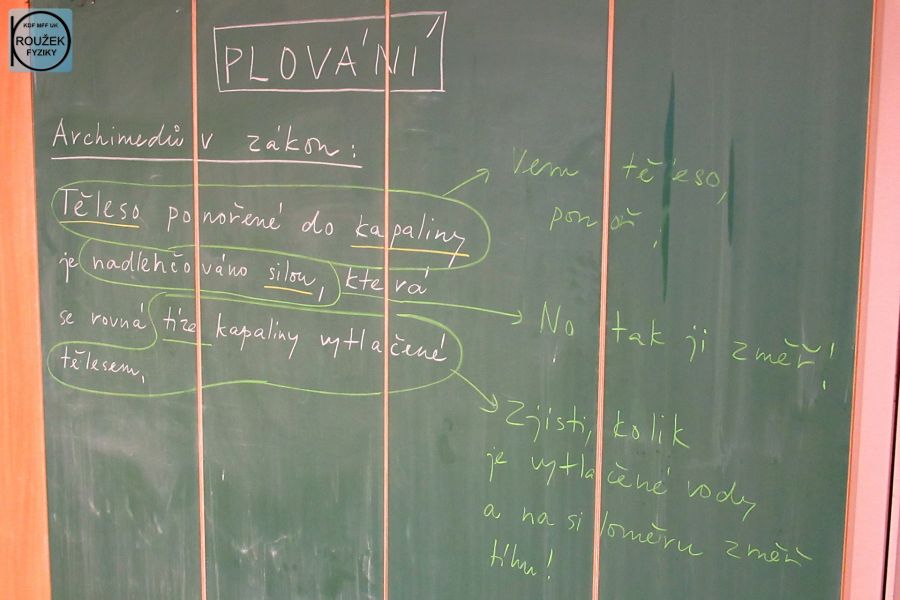 KDF MFF UK
ROUŽEK
FYZIKY
PLOVÁNÍ
Archimedův zákon:
Těleso ponořené do kapaliny
je nadlehčováno silou, která
se rovná tíze kapaliny vytlačené
tělesem.
Vem těleso,
ponoř!
No tak ji změř!
Zjisti, kolik
je vytlačené vody
a na siloměru změř
tíhu!